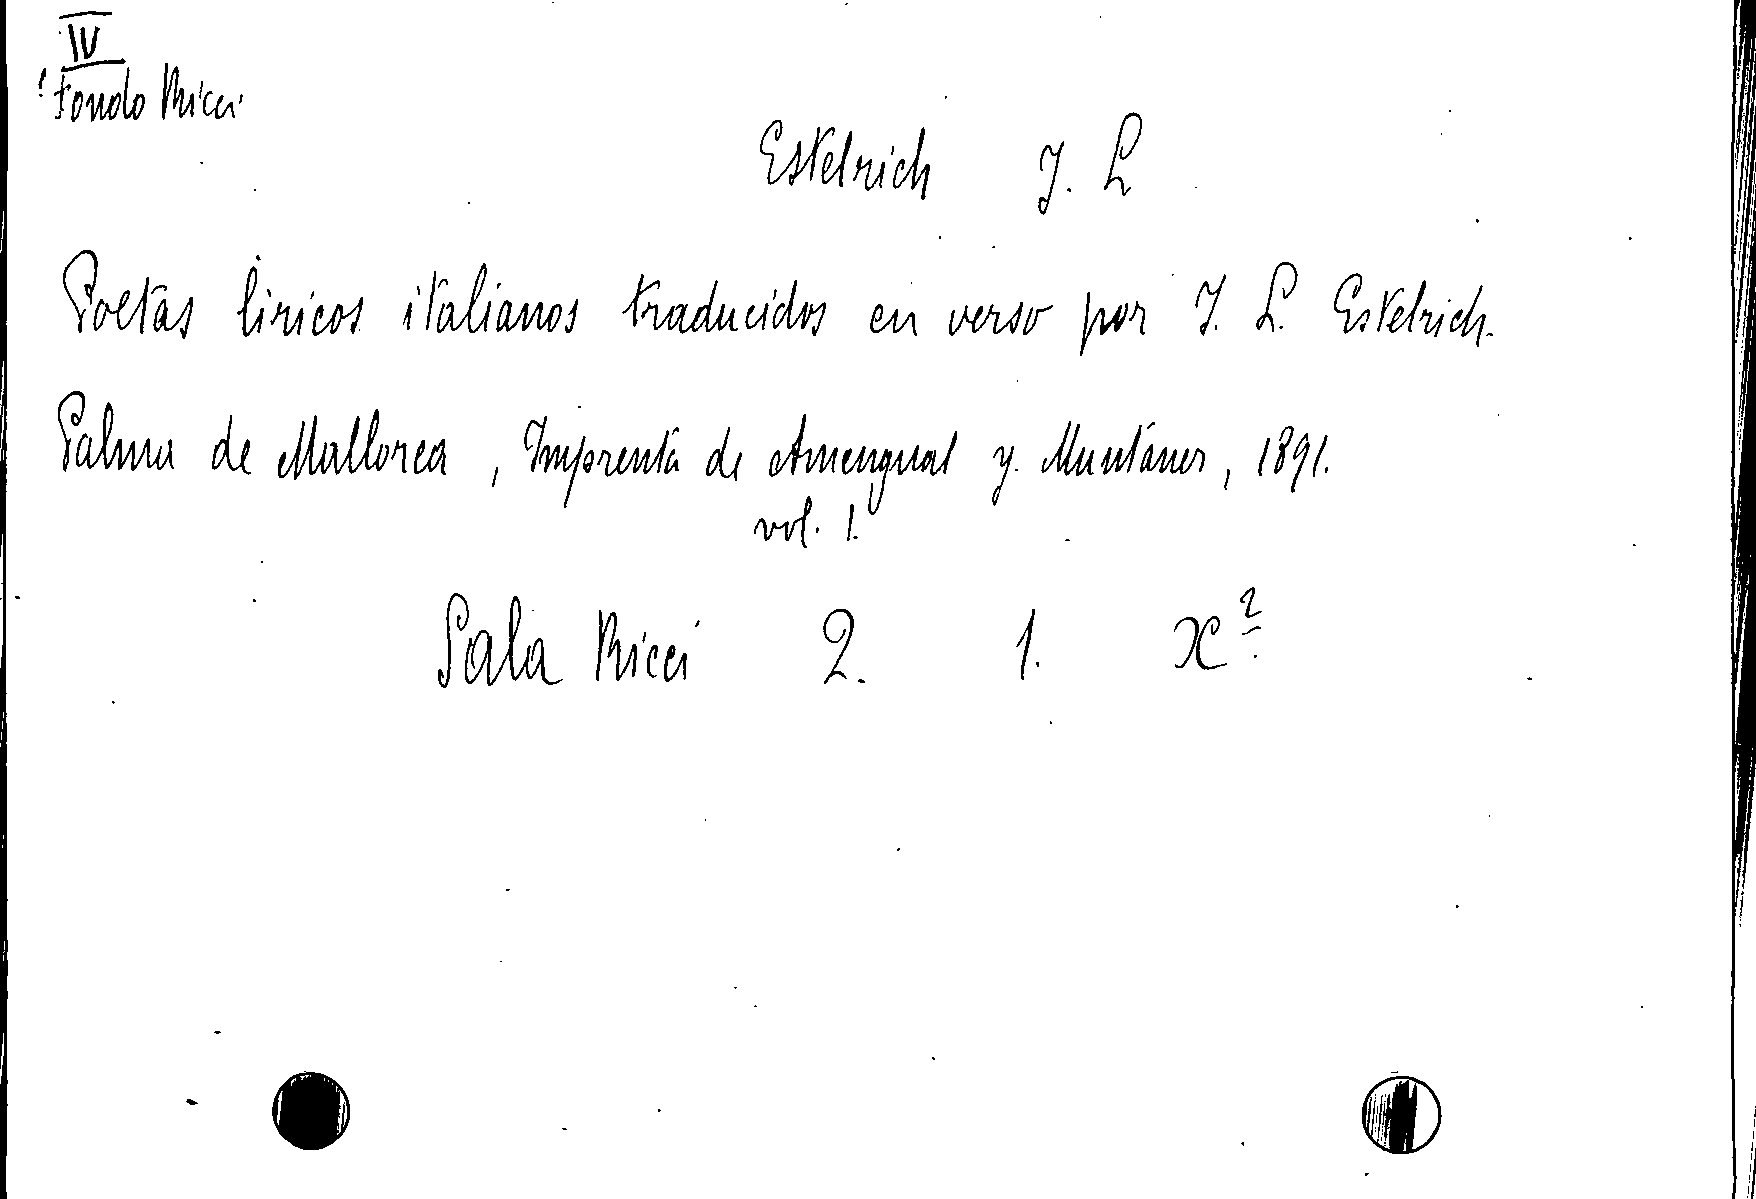 IV
Fondo Ricci
Estelrich J. L
Poetas liricos italianos traducidos en verso por J. L. Estelrich.
Palma de Mallorca, Imprenta de Amengual y Muntáner, 1891.
vol. 1.
Sala Ricci 2. 1. x²